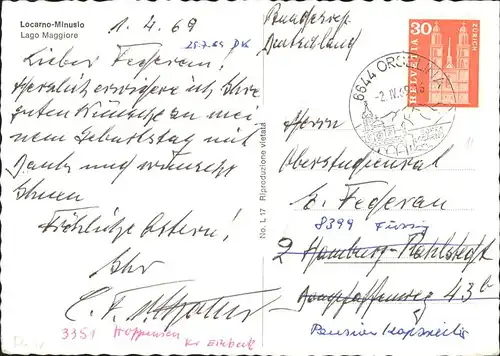 Locarno-Minusio
Lago Maggiore
1. 4. 69
Lieber Federau!
Herzlich erwidere ich Ihre
guten Wünsche zu mei
nem Geburtstag mit
Dank und wünsche
Ihnen
Fröhliche Ostern!
Ihr
3351 Hoppensen
Kr Einbeck
No. L 17 Riproduzione vietata
Bundesrep.
Deutschland
30
HELVETIA
ZÜRICH
6644 ORSELINA
Herrn
Oberstudienrat
E. Federau
8399 Füssing
2 Hamburg-Rahlstedt
43b
Pension